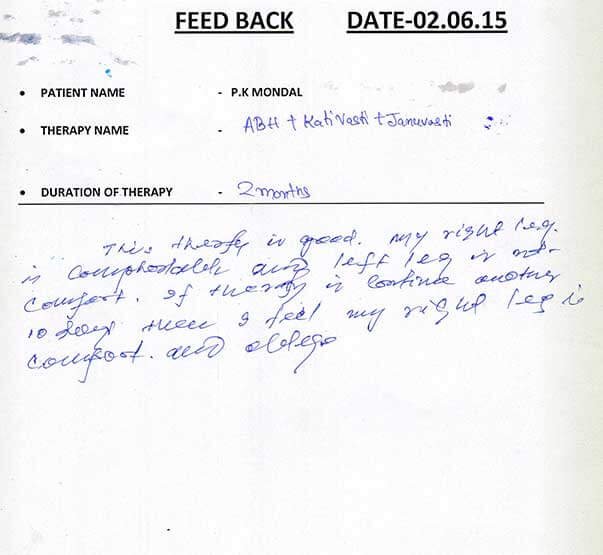 FEED BACK DATE-02.06.15
• PATIENT NAME - P.K MONDAL
• THERAPY NAME - ABH + Kati Vasti + Januvasti
• DURATION OF THERAPY - 2 months
This therapy is good. my right leg.
is comfortable and left leg is not
comfort. If therapy is continue another
10 days then I feel my right leg is
comfort. and oblige